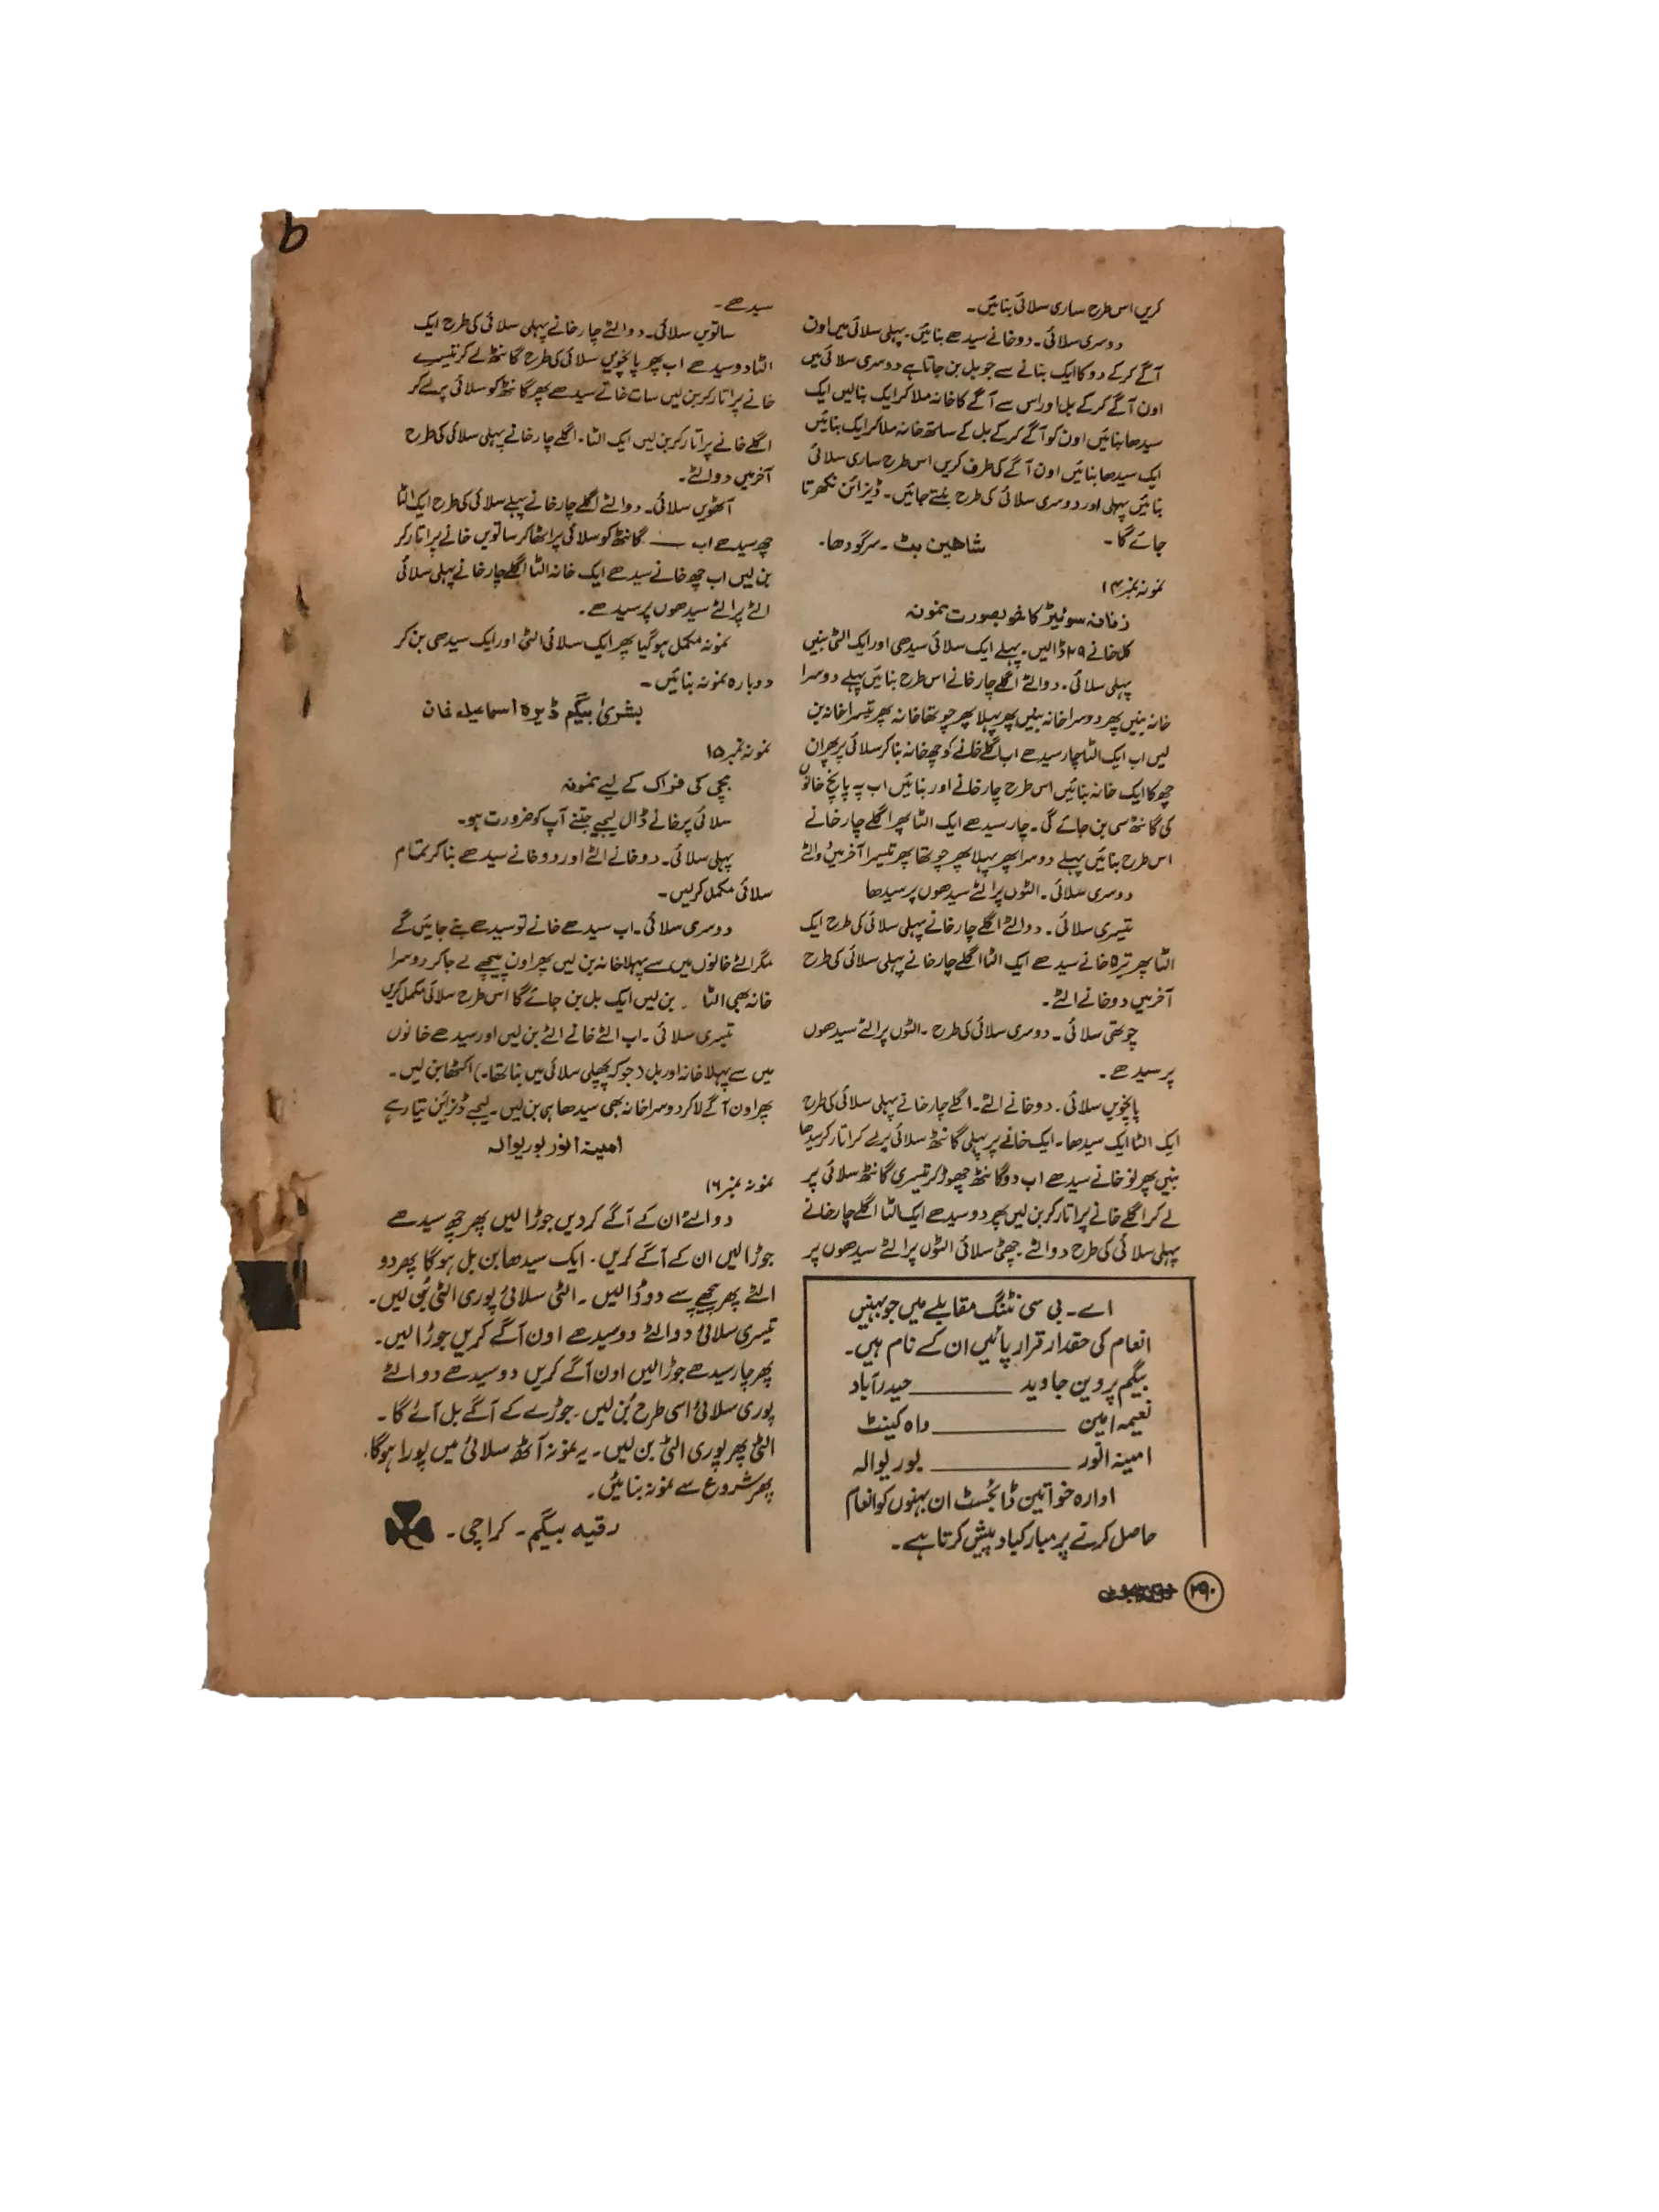 کریں اس طرح ساری سلائی بنائیں۔
دوسری سلائی۔ دو خانے سیدھے بنائیں۔ پہلی سلائی میں اون
آگے کر کے دو کا ایک بنانے سے جو بل بن جاتا ہے دوسری سلائی میں
اون آگے کر کے بل اور اس سے آگے کا خانہ ملا کر ایک بنالیں ایک
سیدھا بنائیں اون کو آگے کر کے بل کے ساتھ خانہ ملا کر ایک بنائیں
ایک سیدھا بنائیں اون آگے کی طرف کریں اس طرح ساری سلائی
بنائیں پہلی اور دوسری سلائی کی طرح بنتے جائیں۔ ڈیزائن نکھرتا
جائے گا۔ شاھین بٹ۔ سرگودھا۔
نمونہ نمبر ۱۴
زنانہ سوئیٹر کا خوبصورت نمونہ
کل خانے ۲۹ ڈالیں۔ پہلے ایک سلائی سیدھی اور ایک الٹی بنیں
پہلی سلائی۔ دو الٹے اگلے چار خانے اس طرح بنائیں پہلے دوسرا
خانہ بنیں پھر دوسرا خانہ بنیں پھر پہلا پھر چوتھا خانہ پھر تیسرا خانہ بن
لیں اب ایک الٹا چار سیدھے اب اگلے خانے کو چھ خانہ بنا کر سلائی پر پھر ان
چھ کا ایک خانہ بنائیں اس طرح چار خانے اور بنائیں اب یہ پانچ خانوں
کی گانٹھ سی بن جائے گی۔ چار سیدھے ایک الٹا پھر اگلے چار خانے
اس طرح بنائیں پہلے دوسرا پھر پہلا پھر چوتھا پھر تیسرا آخر میں دو الٹے
دوسری سلائی۔ الٹوں پر الٹے سیدھوں پر سیدھا
تیسری سلائی۔ دو الٹے اگلے چار خانے پہلی سلائی کی طرح ایک
الٹا پھر تیرہ خانے سیدھے ایک الٹا اگلے چار خانے پہلی سلائی کی طرح
آخر میں دو خانے الٹے۔
چوتھی سلائی۔ دوسری سلائی کی طرح۔ الٹوں پر الٹے سیدھوں
پر سیدھے۔
پانچویں سلائی۔ دو خانے الٹے۔ اگلے چار خانے پہلی سلائی کی طرح
ایک الٹا ایک سیدھا۔ ایک خانے پر پہلی گانٹھ سلائی پر لے کر اتار کر سیدھا
بنیں پھر نو خانے سیدھے اب دو گانٹھ چھوڑ کر تیسری گانٹھ سلائی پر
لے کر اگلے خانے پر اتار کر بن لیں پھر دو سیدھے ایک الٹا اگلے چار خانے
پہلی سلائی کی طرح دو الٹے۔ چھٹی سلائی الٹوں پر الٹے سیدھوں پر
اے۔ بی سی نٹنگ مقابلے میں جو بہنیں
انعام کی حقدار قرار پائیں ان کے نام ہیں۔
بیگم پروین جاوید ــــــــــ حیدرآباد
نعیمہ امین ــــــــــ واہ کینٹ
امینہ انور ــــــــــ بوریوالہ
ادارہ خواتین ڈائجسٹ ان بہنوں کو انعام
حاصل کرنے پر مبارکباد پیش کرتا ہے۔
۲۹۰
سیدھے۔
ساتویں سلائی۔ دو الٹے چار خانے پہلی سلائی کی طرح ایک
الٹا دو سیدھے اب پھر پانچویں سلائی کی طرح گانٹھ لے کر تیسرے
خانے پر اتار کر بن لیں سات خانے سیدھے پھر گانٹھ کو سلائی پر لے کر
اگلے خانے پر اتار کر بن لیں ایک الٹا۔ اگلے چار خانے پہلی سلائی کی طرح
آخر میں دو الٹے۔
آٹھویں سلائی۔ دو الٹے اگلے چار خانے پہلے سلائی کی طرح ایک الٹا
چھ سیدھے اب ــــ گانٹھ کو سلائی پر اٹھا کر ساتویں خانے پر اتار کر
بن لیں اب چھ خانے سیدھے ایک خانہ الٹا اگلے چار خانے پہلی سلائی
الٹے پر الٹے سیدھوں پر سیدھے۔
نمونہ مکمل ہو گیا پھر ایک سلائی الٹی اور ایک سیدھی بن کر
دوبارہ نمونہ بنائیں۔
بشریٰ بیگم ڈیرہ اسماعیل خان
نمونہ نمبر ۱۵
بچی کی فراک کے لیے نمونہ
سلائی پر خانے ڈال لیجیے جتنے آپ کو ضرورت ہو۔
پہلی سلائی۔ دو خانے الٹے اور دو خانے سیدھے بنا کر تمام
سلائی مکمل کر لیں۔
دوسری سلائی۔ اب سیدھے خانے تو سیدھے بنے جائیں گے
مگر الٹے خانوں میں سے پہلا خانہ بن لیں پھر اون پیچھے لے جا کر دوسرا
خانہ بھی الٹا۔ بن لیں ایک بل بن جائے گا اس طرح سلائی مکمل کریں
تیسری سلائی۔ اب الٹے خانے الٹے بن لیں اور سیدھے خانوں
میں سے پہلا خانہ اور بل (جو کہ پچھلی سلائی میں بنا تھا۔) اکٹھا بن لیں۔
پھر اون آگے لا کر دوسرا خانہ بھی سیدھا ہی بن لیں۔ لیجیے ڈیزائن تیار ہے
امینہ انور بوریوالہ
نمونہ نمبر ۱۶
دو الٹے ان کے آگے کر دیں جوڑا لیں پھر چھ سیدھے
جوڑا لیں ان کے آگے کریں۔ ایک سیدھا بن بل ہو گا پھر دو
الٹے پھر پیچھے سے دو ڈالیں۔ الٹی سلائی پوری الٹی بُن لیں۔
تیسری سلائی دو الٹے دو سیدھے اون آگے کریں جوڑا لیں۔
پھر چار سیدھے جوڑا لیں اون آگے کریں دو سیدھے دو الٹے
پوری سلائی اسی طرح بُن لیں۔ جوڑے کے آگے بل آئے گا۔
الٹی پھر پوری الٹی بن لیں۔ یہ نمونہ آٹھ سلائی میں پورا ہوگا۔
پھر شروع سے نمونہ بنائیں۔
رقیہ بیگم۔ کراچی۔